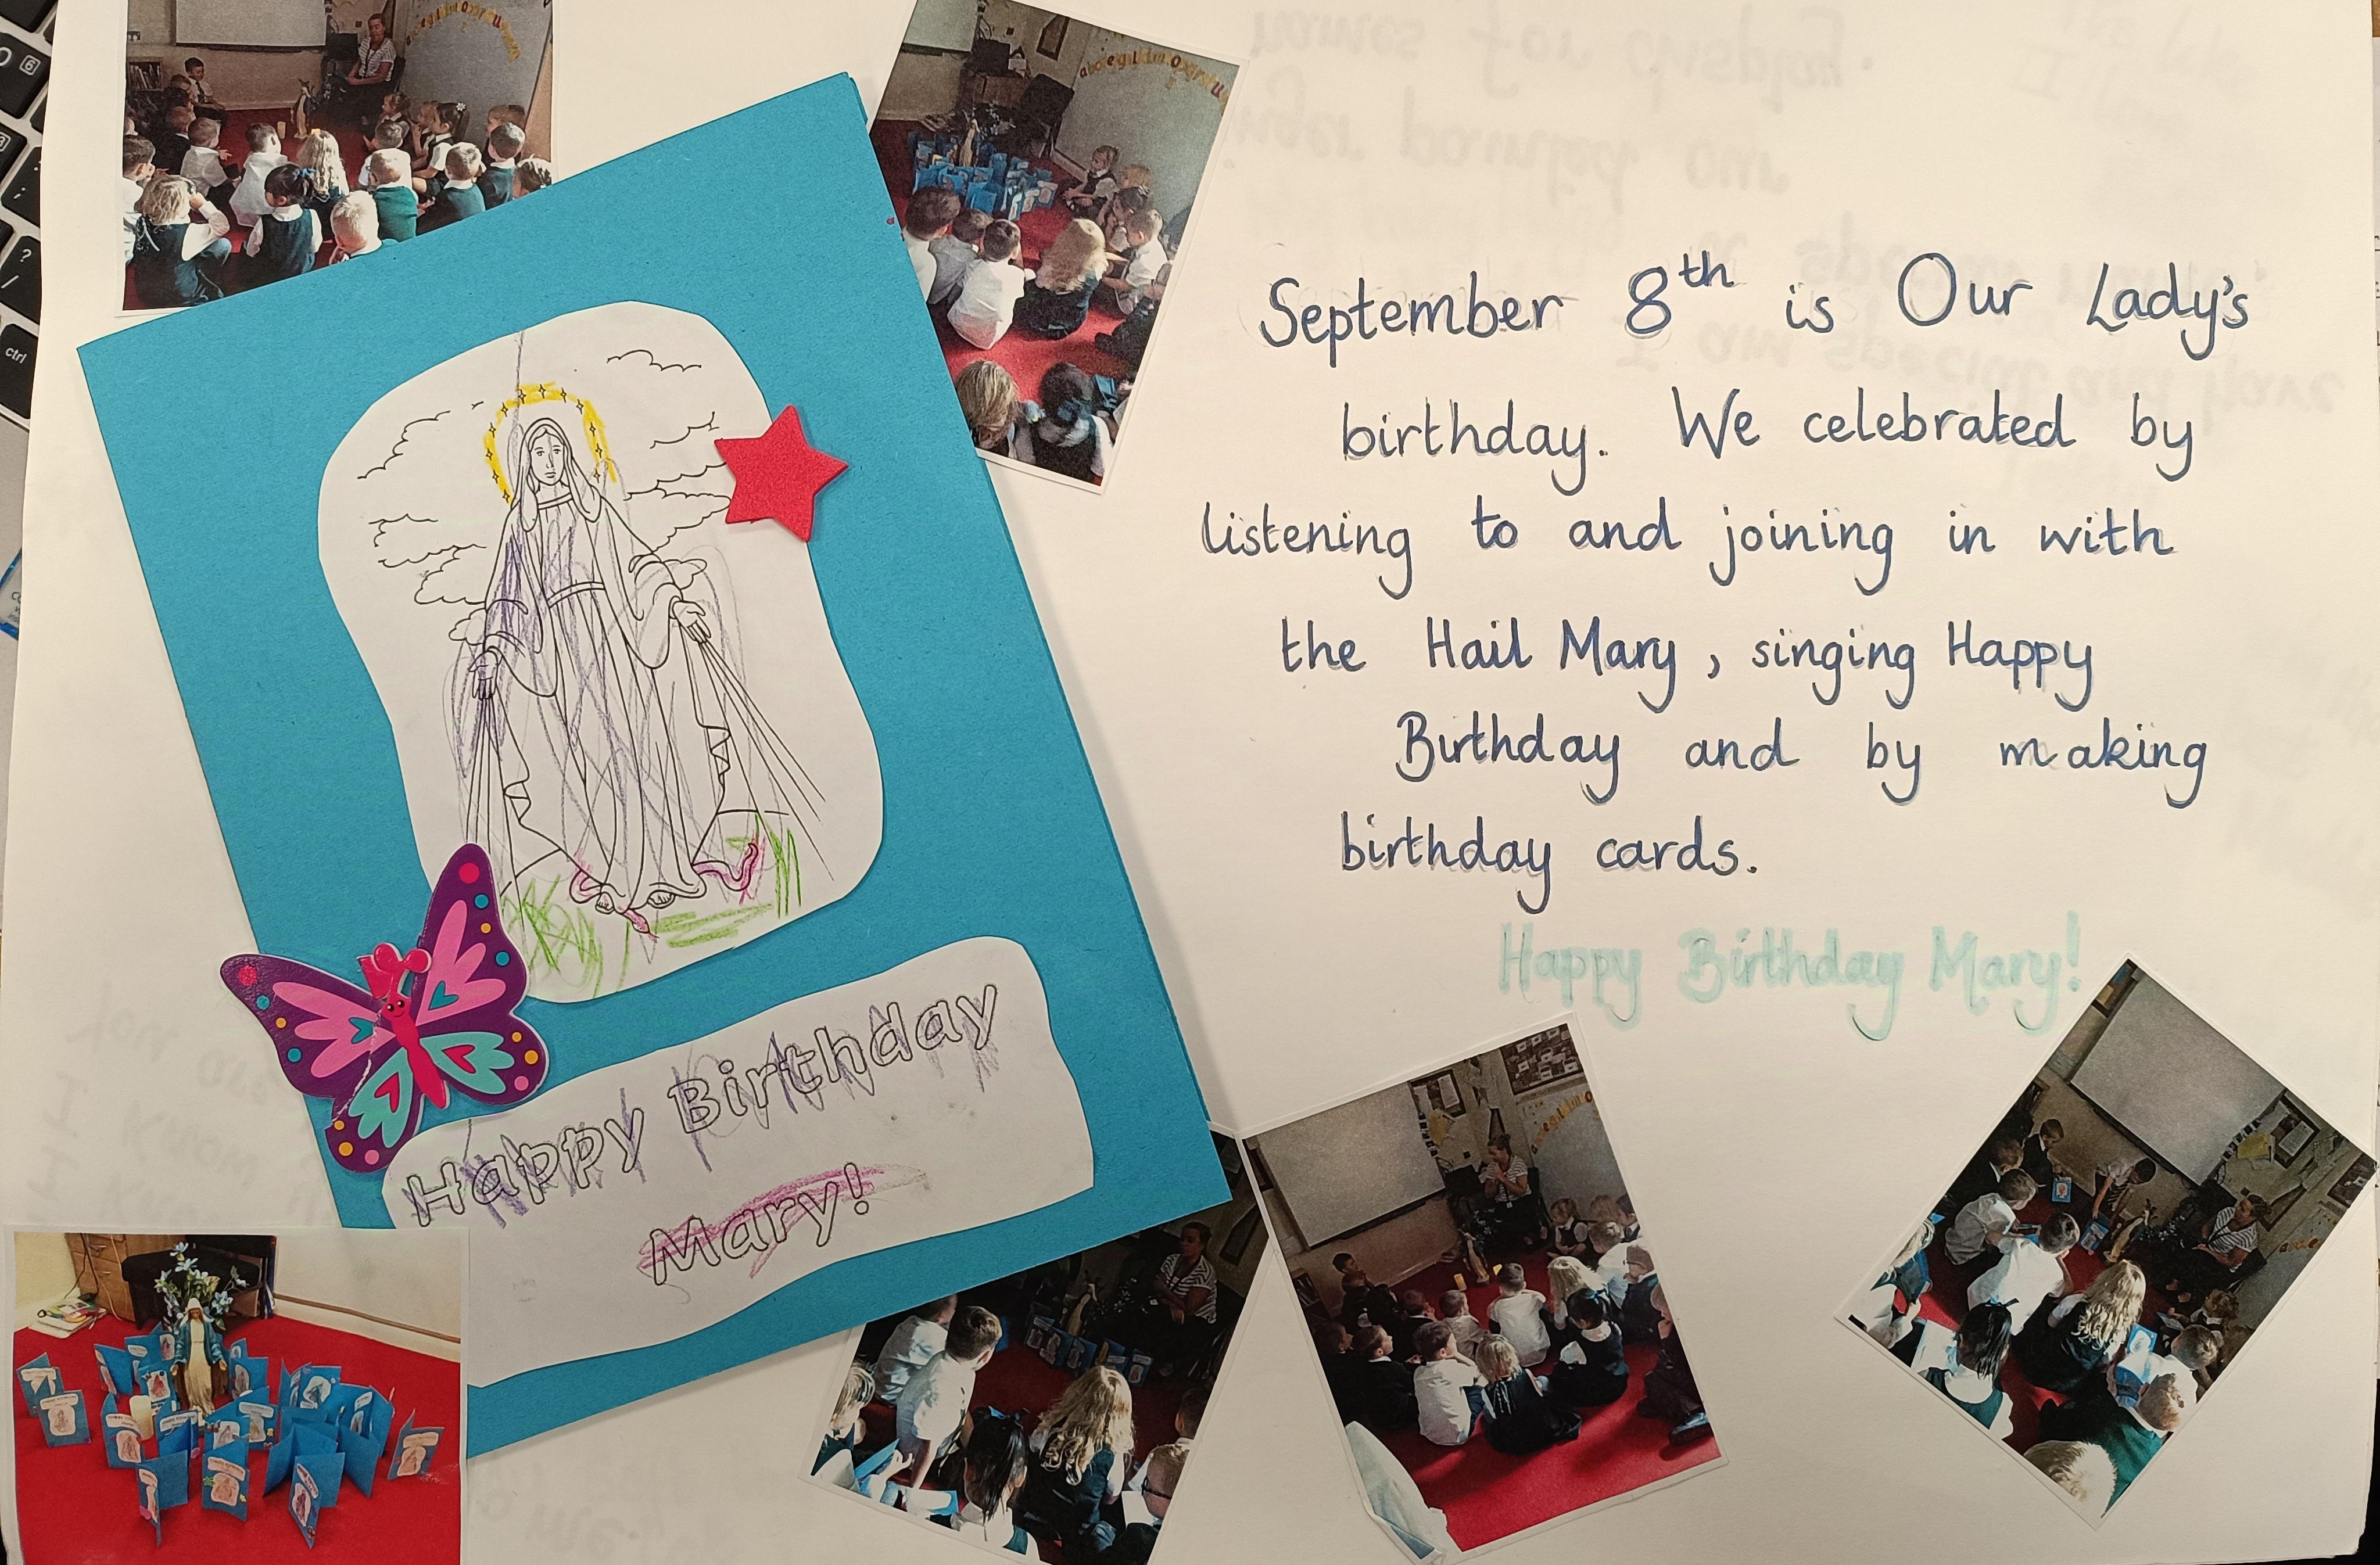 September 8th is Our Lady's
birthday. We celebrated by
listening to and joining in with
the Hail Mary, singing Happy
Birthday and by making
birthday cards.
Happy Birthday Mary!
Happy Birthday
Mary!
ctrl